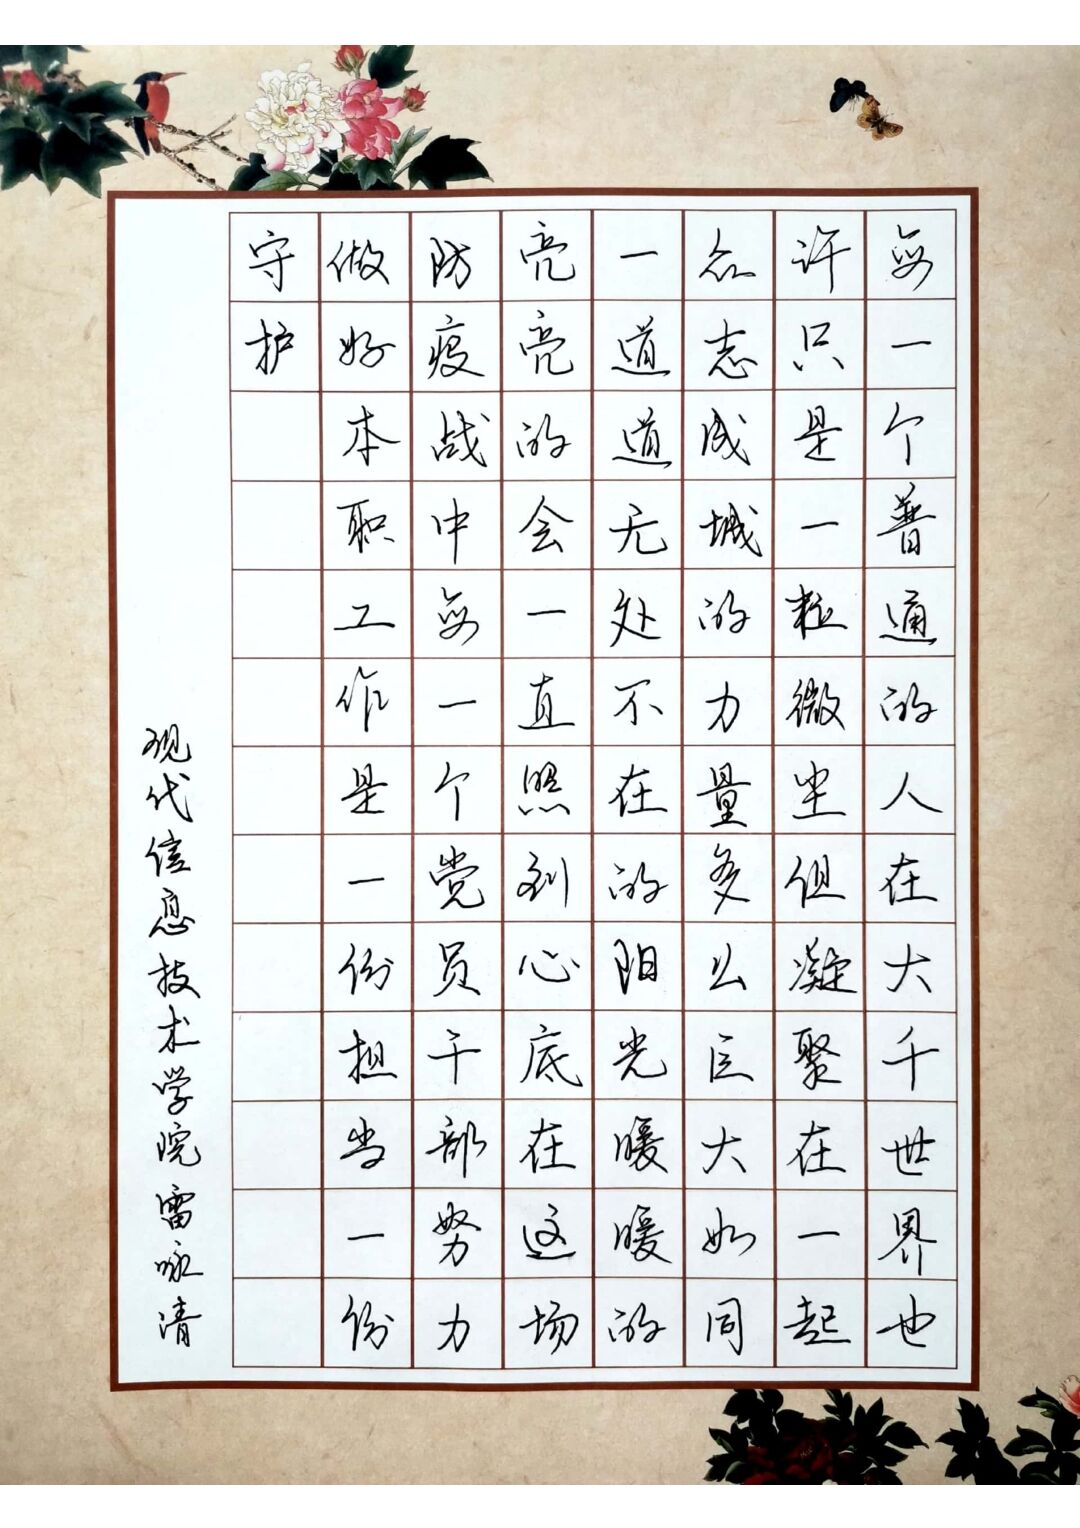 每一个普通的人在大千世界也
许只是一粒微尘但凝聚在一起
众志成城的力量多么巨大如同
一道道无处不在的阳光暖暖的
亮亮的会一直照到心底在这场
防疫战中每一个党员干部努力
做好本职工作是一份担当一份
守护
现代信息技术学院雷咏清